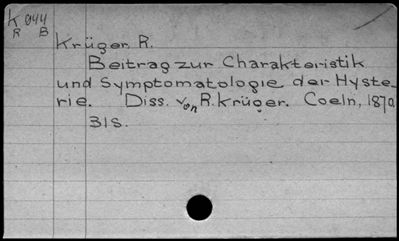 K 944
R B
Krüger, R.
Beitrag zur Charakteristik
und Symptomatologie der Hyste-
rie. Diss. von R. Krüger. Coeln, 1870
31S.